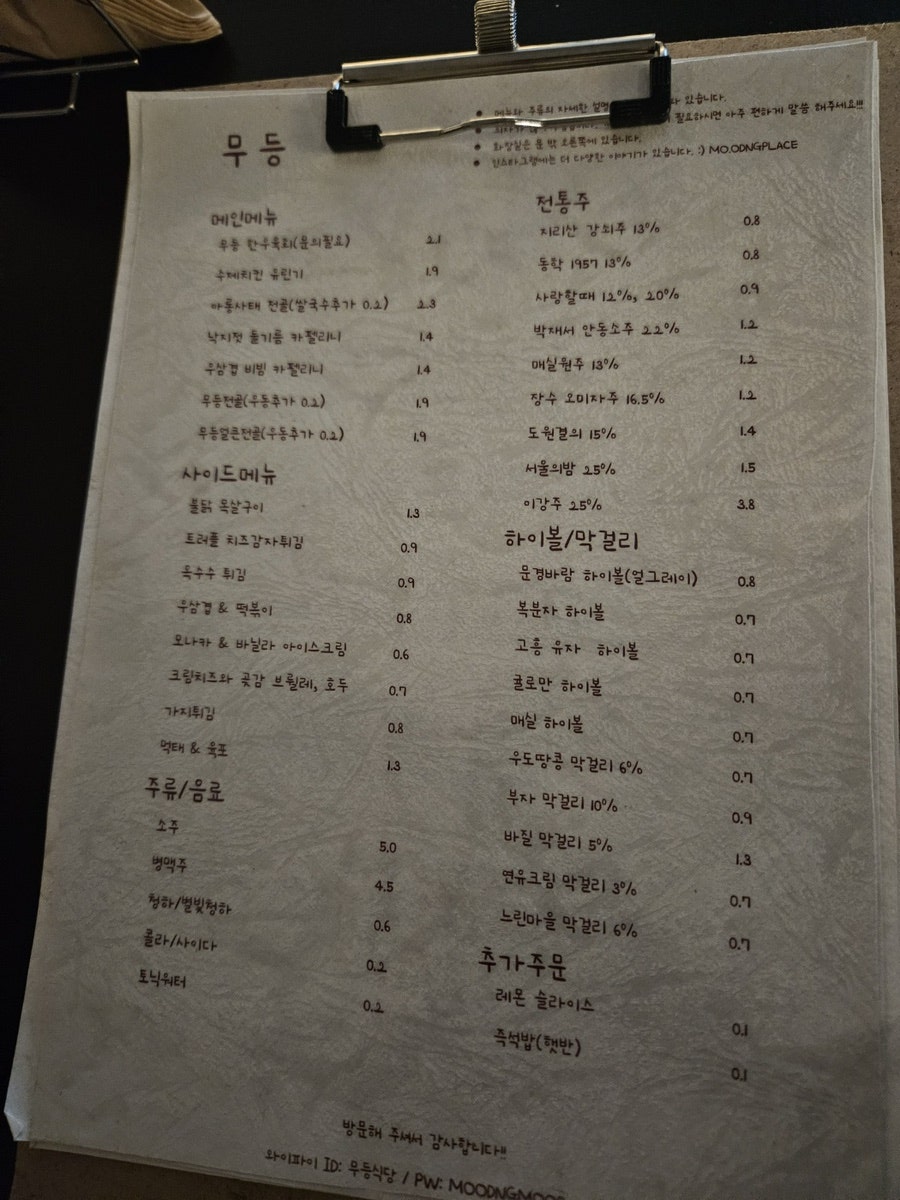 무등
메뉴와 주류의 자세한 설명 있습니다.
필요하시면 아주 편하게 말씀 해주세요!!!
화장실은 문 밖 오른쪽에 있습니다.
인스타그램에는 더 다양한 이야기가 있습니다. :) MO.ODNGPLACE
메인메뉴
무등 한우육회(문의필요) 2.1
수제치킨 유린기 1.9
아롱사태 전골(쌀국수추가 0.2) 2.3
낙지젓 들기름 카펠리니 1.4
우삼겹 비빔 카펠리니 1.4
무등전골(우동추가 0.2) 1.9
무등얼큰전골(우동추가 0.2) 1.9
사이드메뉴
불닭 목살구이 1.3
트러플 치즈감자튀김 0.9
옥수수 튀김 0.9
우삼겹 & 떡볶이 0.8
모나카 & 바닐라 아이스크림 0.6
크림치즈와 곶감 브륄레, 호두 0.7
가지튀김 0.8
먹태 & 육포 1.3
주류/음료
소주 5.0
병맥주 4.5
청하/별빛청하 0.6
콜라/사이다 0.2
토닉워터 0.2
전통주
지리산 강쇠주 13% 0.8
동학 1957 13% 0.8
사랑할때 12%, 20% 0.9
박재서 안동소주 22% 1.2
매실원주 13% 1.2
장수 오미자주 16.5% 1.2
도원결의 15% 1.4
서울의밤 25% 1.5
이강주 25% 3.8
하이볼/막걸리
문경바람 하이볼(얼그레이) 0.8
복분자 하이볼 0.7
고흥 유자 하이볼 0.7
귤로만 하이볼 0.7
매실 하이볼 0.7
우도땅콩 막걸리 6% 0.7
부자 막걸리 10% 0.9
바질 막걸리 5% 1.3
연유크림 막걸리 3% 0.7
느린마을 막걸리 6% 0.7
추가주문
레몬 슬라이스 0.1
즉석밥(햇반) 0.1
방문해 주셔서 감사합니다!!
와이파이 ID: 무등식당 / PW: